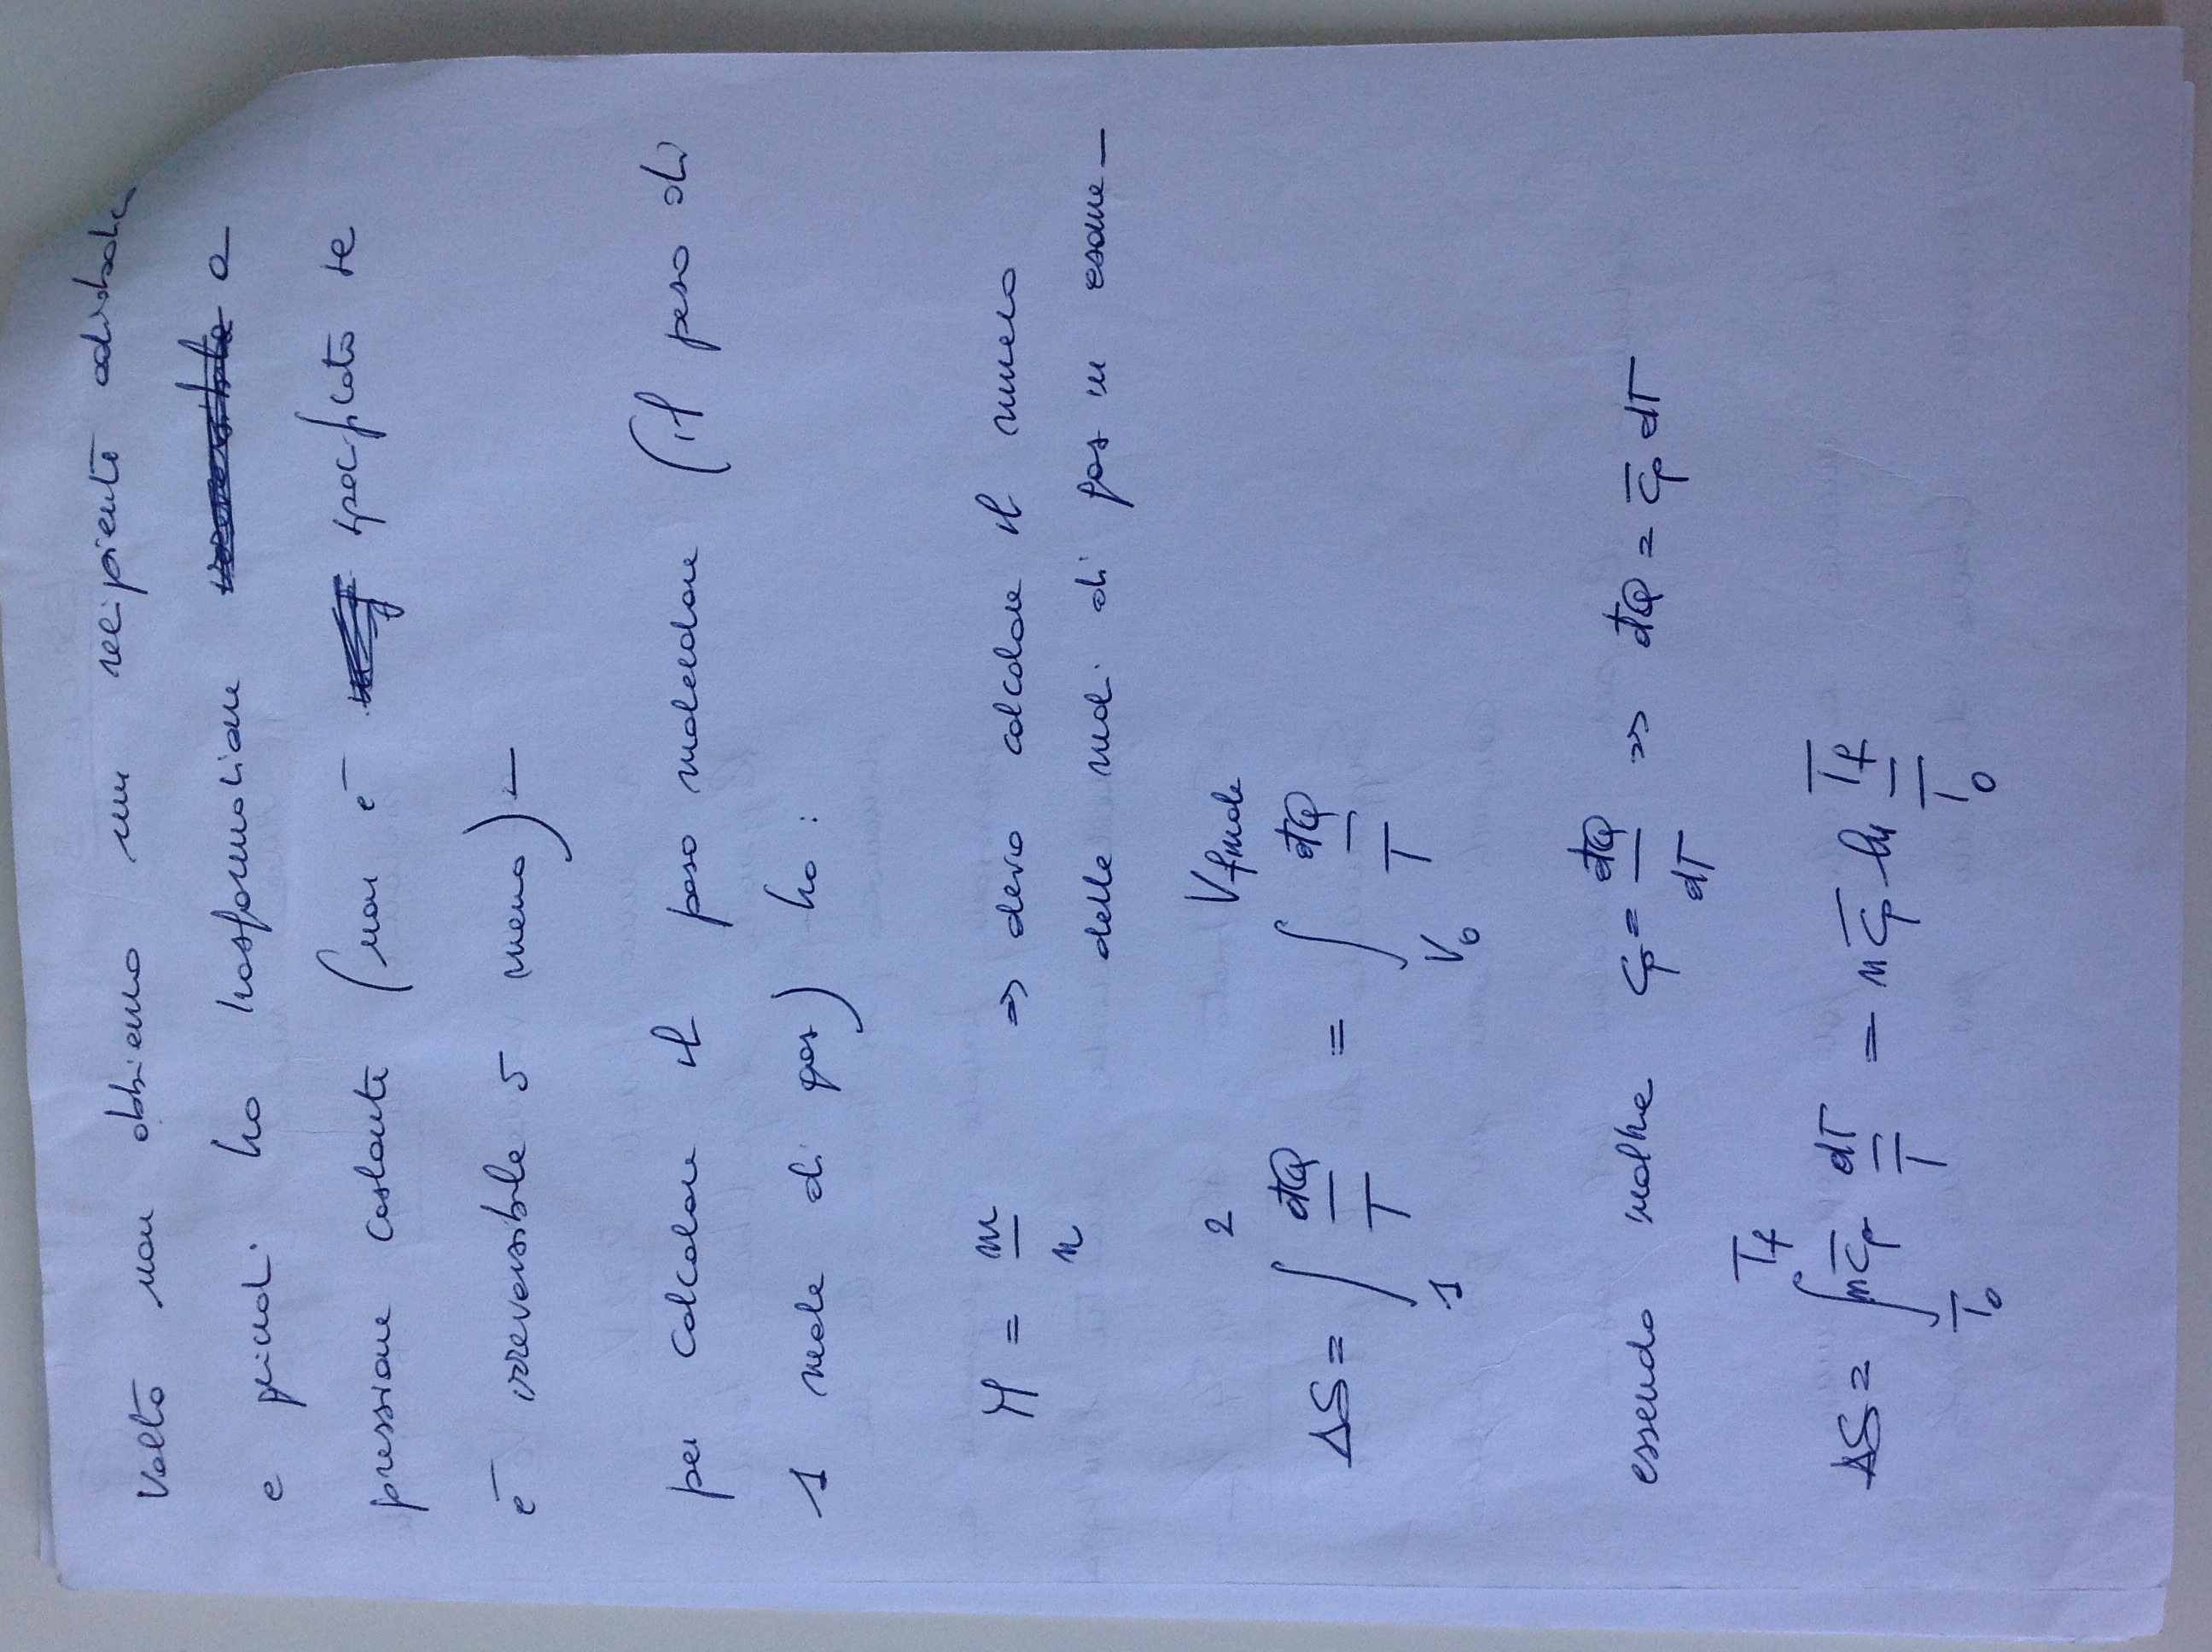 volta non abbiamo un recipiente adiabatico
e quindi ho trasformazione a
pressione costante (non è specificato se
è irreversibile o meno)-
per calcolare il peso molecolare (il peso di
1 mole di gas) ho:
M = m/n ⇒ devo calcolare il numero
delle moli di gas in esame-
ΔS = ∫₁² đQ/T = ∫_{V₀}^{Vfinale} đQ/T
essendo inoltre cp = đQ/dT ⇒ đQ = c̄p dT
ΔS = ∫_{T₀}^{Tf} n c̄p dT/T = n c̄p ln Tf/T₀